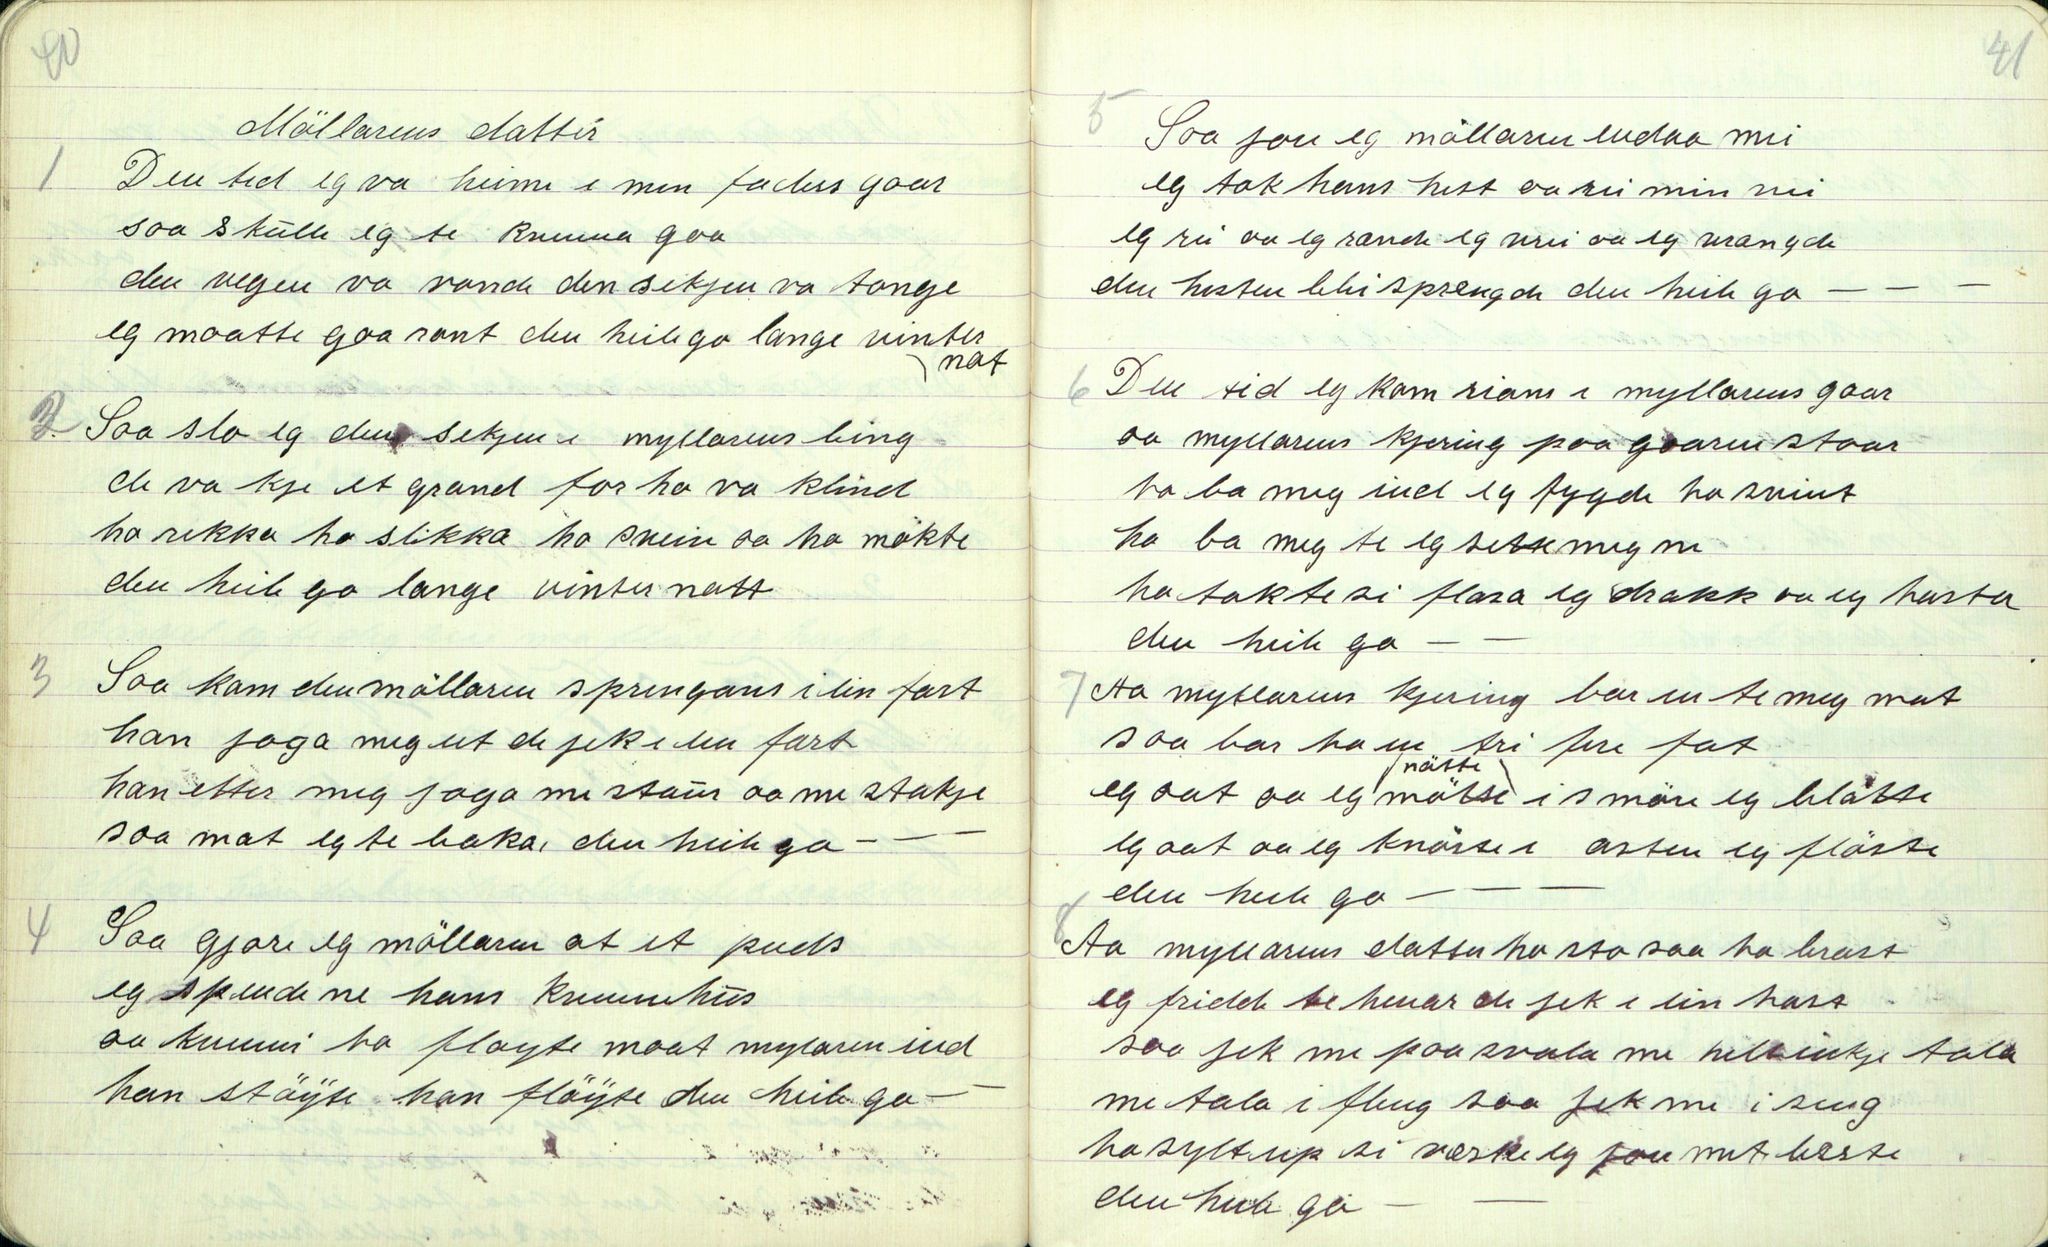 40
Möllarens datter
1 Den tid eg va heime i min faders gaar
saa skulle eg te kvenna gaa
den vegen va vande den sekjen va tonge
eg maatte gaa rant den heile go lange vinter
nat
2. Saa slo eg den sekjen i myllarens bing
de va kje et grand for ho va blind
ho rekka ho slikka ho svein oa ho mökte
den heile go lange vinternatt
3 Saa kom den möllaren sprengans i ein fart
han joga meg ut de jek i ein fart
han etter meg joga me staur oa me stakje
soa mat eg te baka, den heile go - - -
4 Saa gjore eg möllaren at et puds
eg spende ne hans kvennhus
oa kvenni ho floyte moat mylaren ind
han stöyte han flöyte den heile go -
41
5 Soa jou eg möllaren endaa mei
eg tok hans hest oa rei min vei
eg rei oa eg rande eg vrei oa eg vrangde
den hesten blei sprengde den heile go - - -
6 Den tid eg kom rians i myllarens gaar
oa myllarens kjering paa goaren stoar
ho ba meg ind eg fygde ho svint
ho ba meg te eg sette meg ne
ho tokte si flasa eg drakk oa eg hasta
den heile go - -
7 Aa myllarens kjering bar en te meg mat
soa bar ho en tri fire fat
nötte
eg oat oa eg mötte i smöre eg blötte
eg oat oa eg knöste i osten eg flöste
den heile go - - -
8 Aa myllarens datter ho sto soa ho brast
eg fridde te henar de jek i ein hast
soa jek me poa svala me helt inkje tala
me tala i fleng soa jek me i seng
ho sylt up si veske eg jou mit beste
den heile go - -